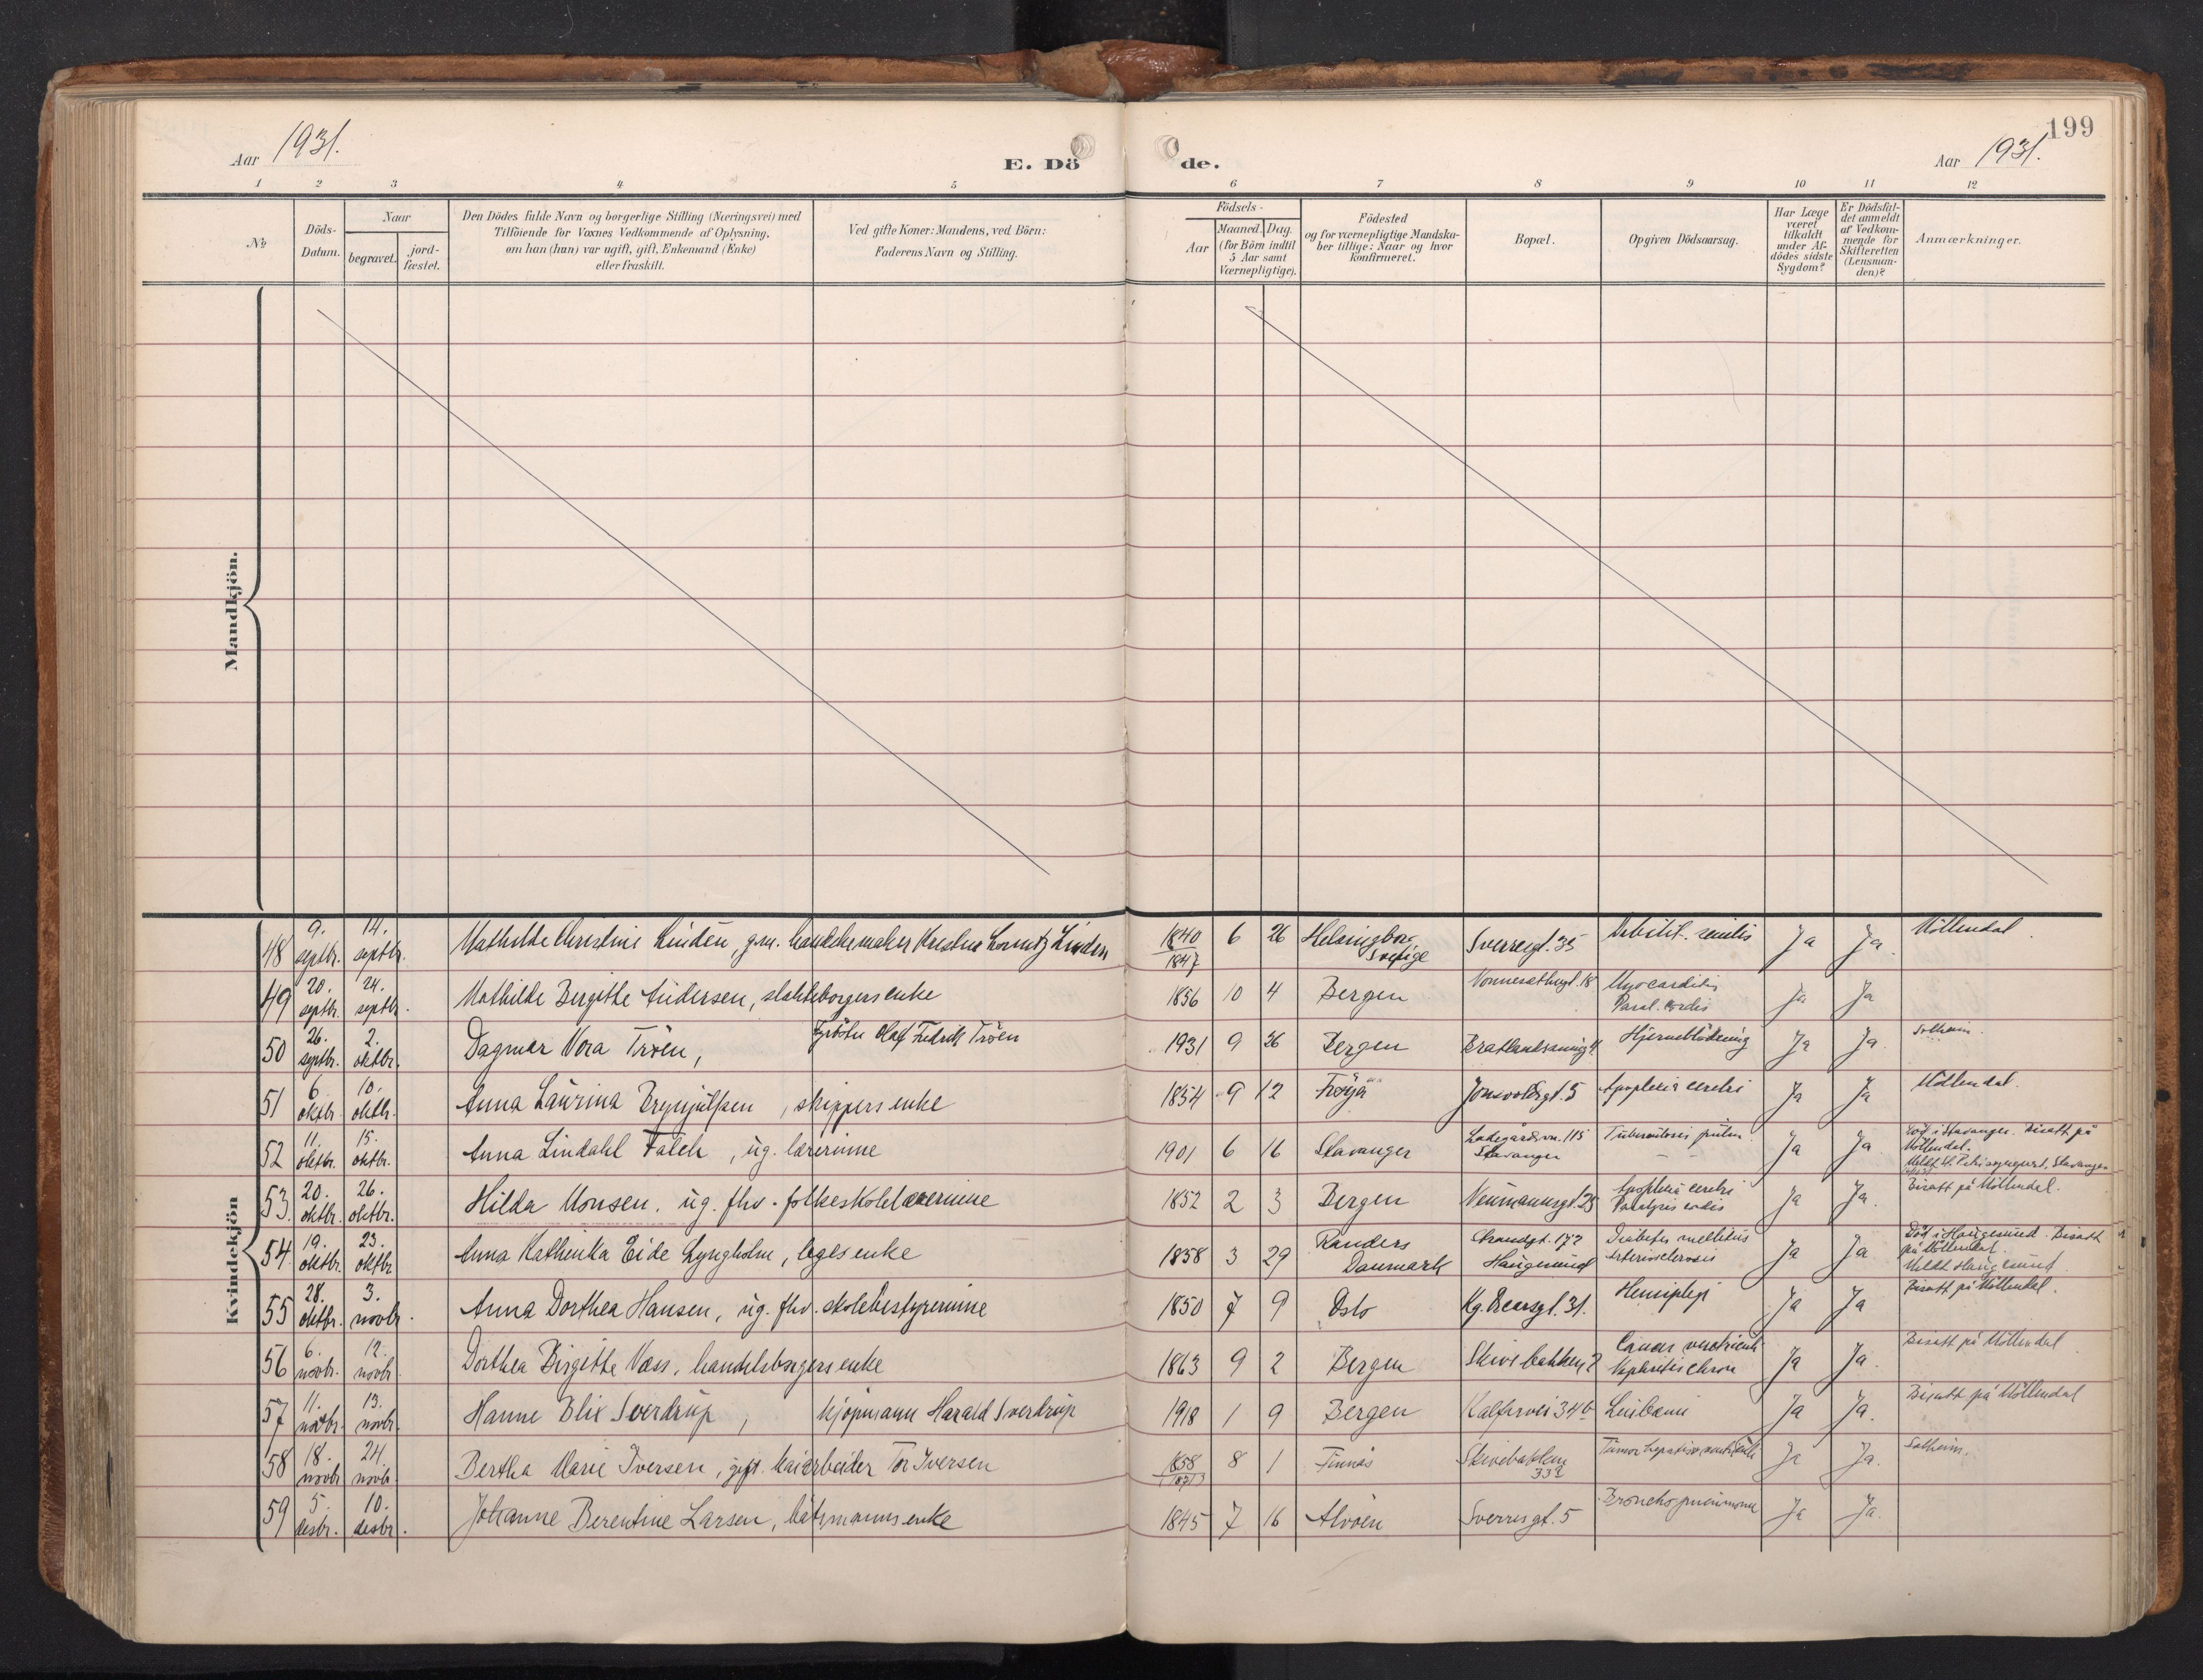 199
Aar 1931.
E. Dö de.
Aar 1931.
1 2 3 4 5 6 7 8 9 10 11 12
No
Döds-
Datum.
Naar
begravet.
jord-
fæstet.
Den Dödes fulde Navn og borgerlige Stilling (Næringsvei) med
Tilföiende for Voxnes Vedkommende af Oplysning,
om han (hun) var ugift, gift, Enkemand (Enke)
eller fraskilt.
Ved gifte Koner: Mandens, ved Börn:
Faderens Navn og Stilling.
Födsels-
Aar
Maaned. Dag.
(for Börn indtil
5 Aar samt
Værnepligtige).
Födested
og for værnepligtige Mandska-
ber tillige: Naar og hvor
Konfirmeret.
Bopæl.
Opgiven Dödsaarsag.
Har Læge
været
tilkaldt
under Af-
dödes sidste
Sygdom?
Er Dödsfal-
det anmeldt
af Vedkom-
mende for
Skifteretten
(Lensman-
den)?
Anmærkninger.
Mandkjön.
Kvindekjön
48 9. septbr. 14. septbr. Mathilde Christine Lindén, g.m. handskemaker Kristian Lindén 1840 1847 6 26 Helsingborg Sverige Sverresgt. 35 senilis Ja Ja Möllendal.
49 20. septbr. 24. septbr. Mathilde Bergitte Andersen, enke 1856 10 4 Bergen 18 Myocarditis Paral. cordis Ja Ja
50 26. septbr. 2. oktbr. Dagmar Vera Tröen, Olaf Fredrik Tröen 1931 9 26 Bergen Hjerneblödning Ja Ja Solheim.
51 6. oktbr. 10. oktbr. Anna Laurina Brynjulfsen, skippers enke 1854 9 12 Jonsvoldsgt. 5 Apoplexia cerebri Ja Ja Möllendal.
52 11. oktbr. 15. oktbr. Anna Lindahl Falch, ug. lærerinne 1901 6 16 Stavanger Ladegårdsvn. 115 Stavanger Tuberculosis pulm. Ja Ja Död i Stavanger. Bisatt på Möllendal. Stavanger
53. 20. oktbr. 26. oktbr. Hilda Monsen. ug. fhv. folkeskolelærerinne 1852 2 3 Bergen Neumannsgt. 25 Apoplexia cerebri Paralysis cordis Ja Ja. Bisatt på Möllendal.
54. 19. oktbr. 23. oktbr Anna Kathinka Eide Lyngholm, leges enke 1858 3 29 Randers Danmark Strandgt. 172 Haugesund Diabetes mellitus Arteriosclerosis Ja Ja Död i Haugesund. Bisatt på Möllendal. Meldt Haugesund
55 28. oktbr. 3. novbr. Anna Dorthea Hansen, ug. fhv. skolebestyrerinne 1850 7 9 Oslo Kg. Oscarsgt. 31. Hemiplegi Ja Ja Bisatt på Möllendal.
56 6. novbr. 12. novbr Dorthea Birgitte Næss, handelsborgers enke 1863 9 2 Bergen Skivebakken 2 Cancer ventriculi Nephritis chron Ja Ja. Bisatt på Möllendal
57 11. novbr. 13. novbr. Hanne Blix Sverdrup, kjøpmann Harald Sverdrup 1918 1 9 Bergen Kalfarvei 34b Leukæmi Ja Ja. Bisatt på Möllendal
58 18. novbr 24. novbr Bertha Marie Iversen, gift. kaiarbeider Tor Iversen 1858 8 1 Finnås Skivebakken 33a Tumor hepatis Ja Ja. Solheim.
59 5. desbr. 10. desbr. Johanne Berentine Larsen, båtsmanns enke 1845 7 16 Alvöen Sverresgt. 5 Bronchopneumoni Ja Ja.